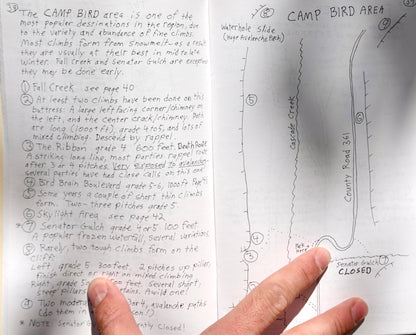 38
The CAMP BIRD area is one of the
most popular destinations in the region, due
to the variety and abundance of fine climbs.
Most climbs form from snowmelt - as a result
they are usually at their best in mid to late
winter. Fall Creek and Senator Gulch are exceptions
they may be done early.
① Fall Creek see page 40
② At least two climbs have been done on this
buttress: A large left facing corner/chimney on
the left, and the center crack/chimney. Both
are long (1000+ft), grade 4 to 5, and lots of
mixed climbing. Descend by rappel.
③ The Ribbon grade 4 600 feet
A striking long line, most parties rappel
after 3 or 4 pitches. Very exposed to avalanche
several parties have had close calls on this one
④ Bird Brain Boulevard grade 5-6, 1000ft
⑤ Some years a couple of short thin climbs
form. Two-three pitches grade 5.
⑥ Skylight Area see page 42
* ⑦ Senator Gulch grade 4 or 5 100 feet
A popular frozen waterfall, several variations.
⑧ Rarely, two tough climbs form on the
cliff:
Left grade 5 300 feet 2 pitches up pillar,
finish direct or right on mixed climbing
Right, grade 5 feet, several short,
steep pillars. A wild one!
⑨ Two moderate or 4, avalanche paths
(do them in season!)
* NOTE: Senator Closed!
CAMP BIRD AREA
⑥
⑨
Waterhole Slide
(Huge Avalanche Path)
⑤
Cascade Creek
County Road 361
⑧
④
③
Park
here
Senator Gulch ⑦
CLOSED